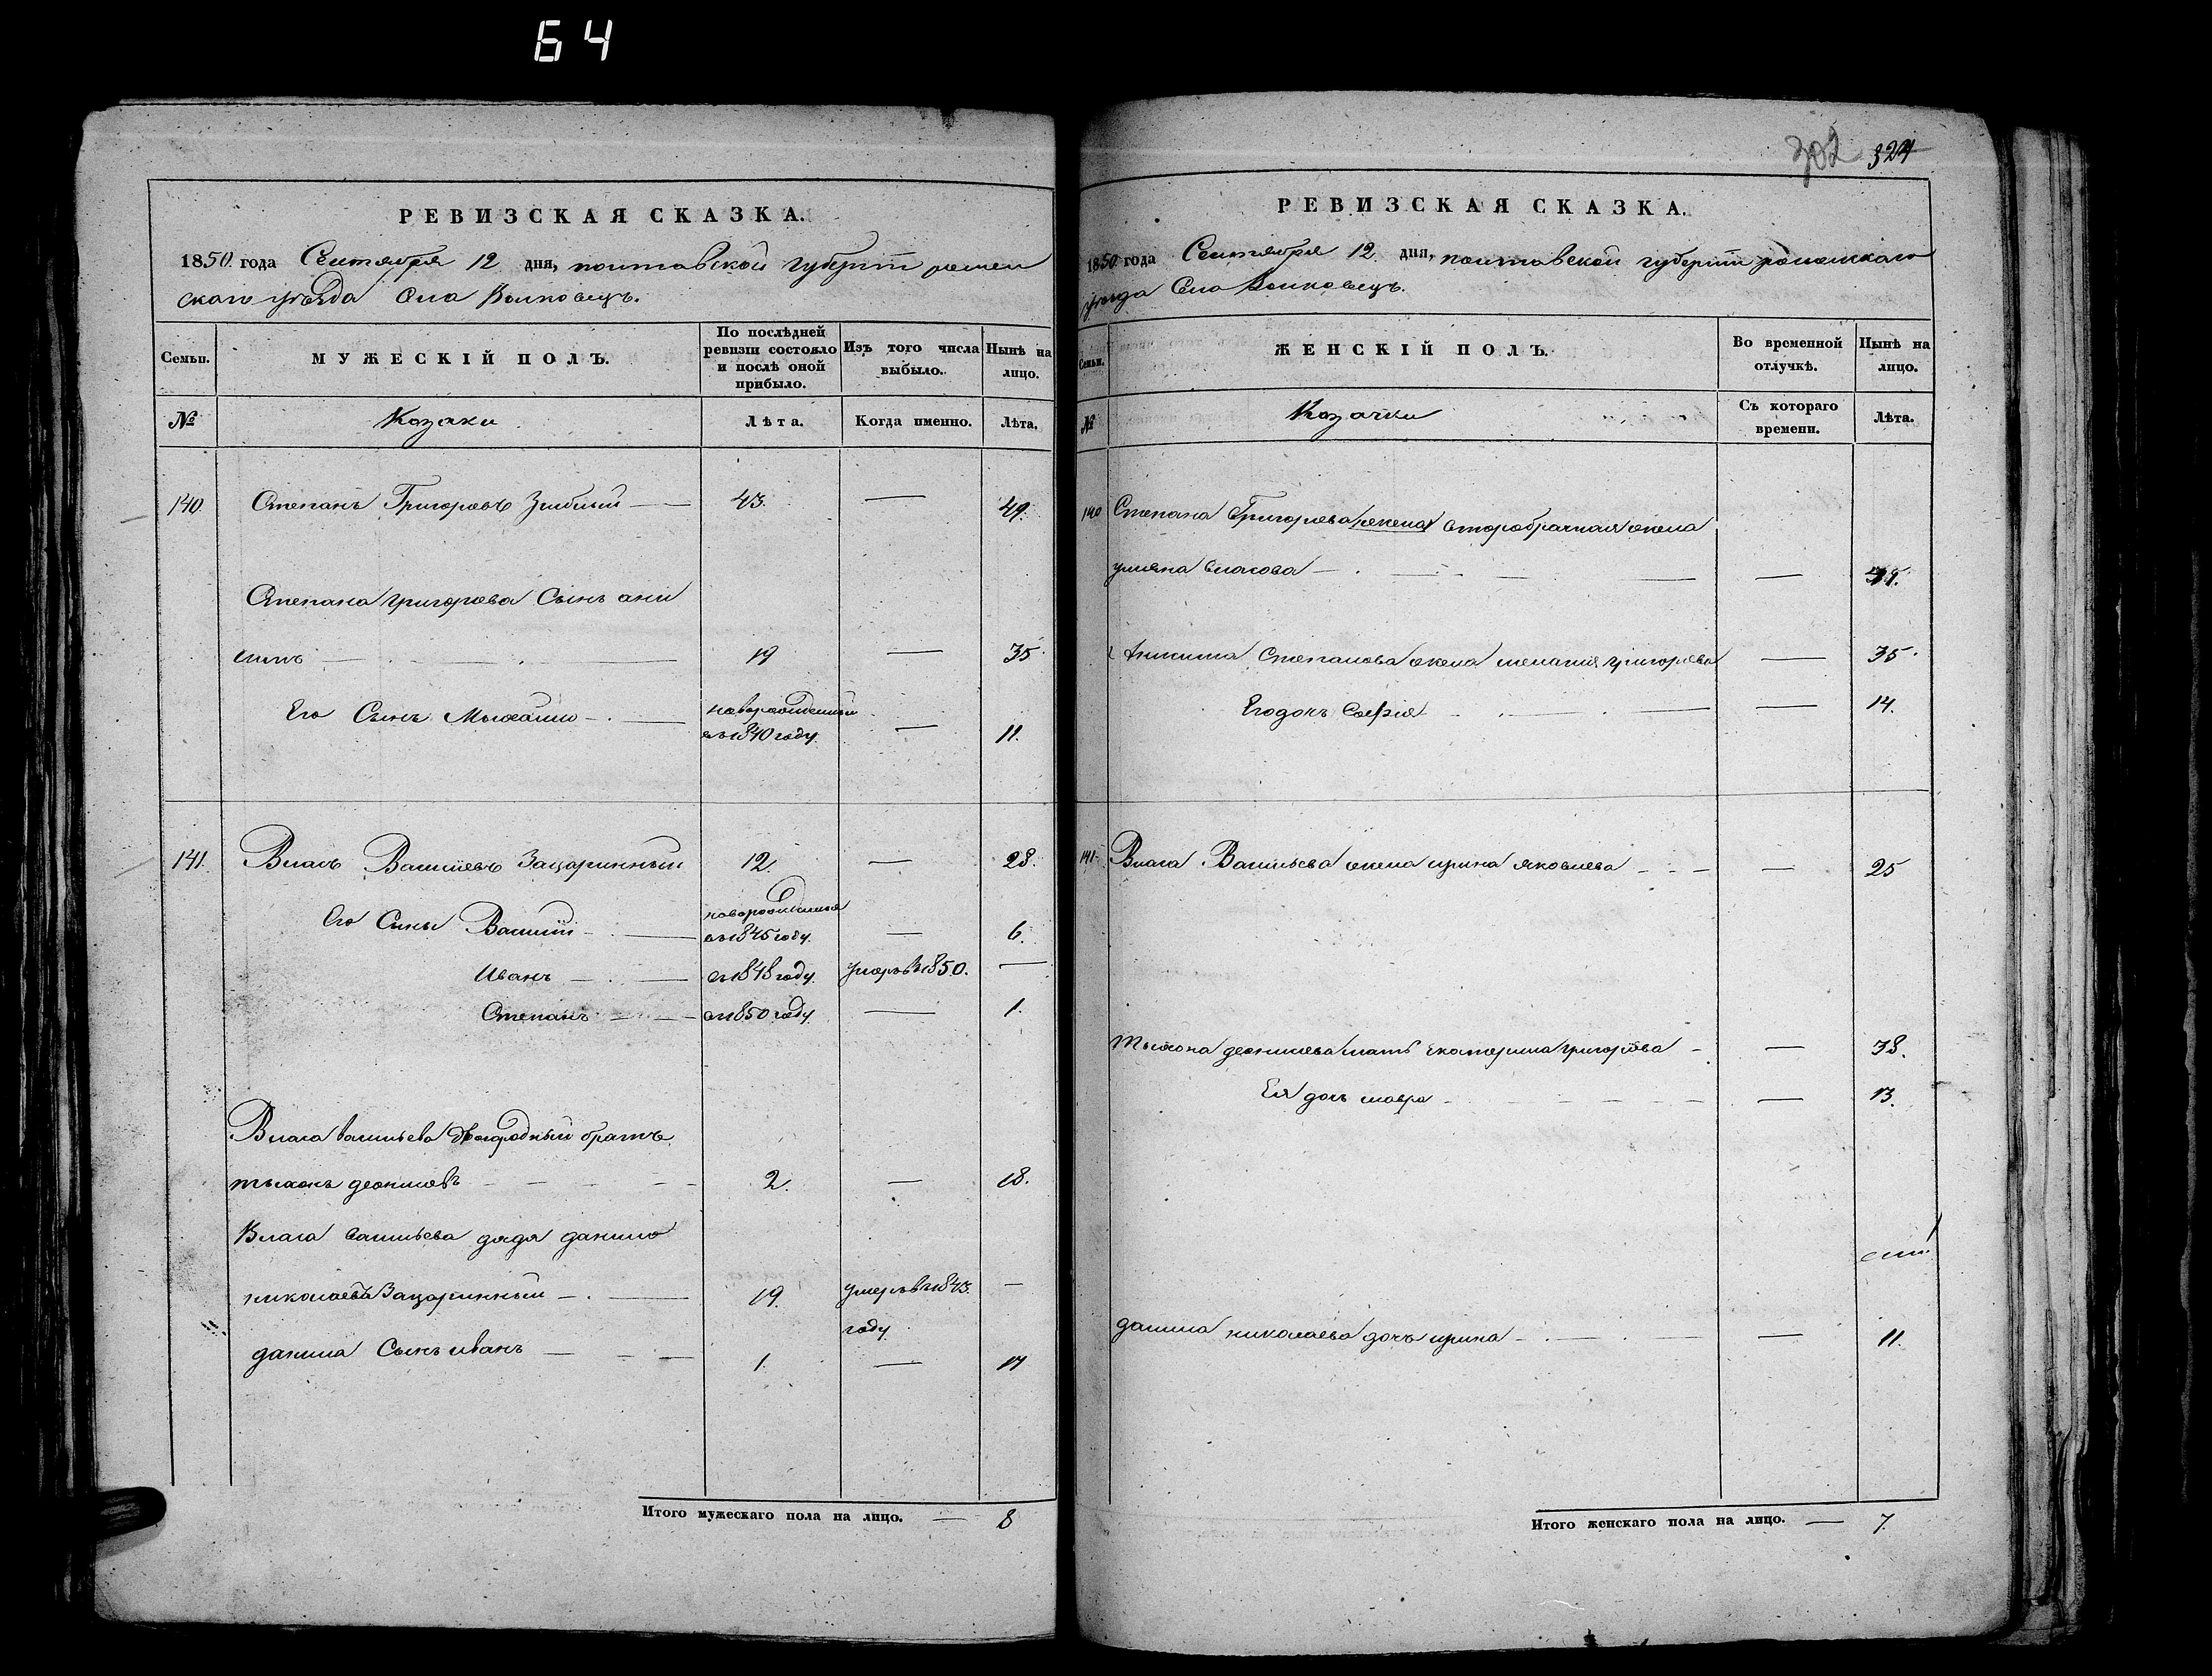 64
РЕВИЗСКАЯ СКАЗКА.
1850 года Сентября 12 дня, полтавской губерніи ромен
скаго уѣзда Села Волковецъ.
Семьи.
МУЖЕСКІЙ ПОЛЪ.
По послѣдней
ревизіи состояло
и послѣ оной
прибыло.
Изъ того числа
выбыло.
Нынѣ на
лицо.
№
Козаки
Лѣта.
Когда именно.
Лѣта.
140 Степанъ Григорьевъ 43. — 49.
Степана григорьева Сынъ ани
19 — 35
Его Сынъ Михайло — новорожденный
въ 1840 году. — 11.
141. Власъ Васильевъ Зацаринный 12. — 28.
Его Сыны Василий — новорожденные
въ 1845 году. — 6.
Иванъ — въ 1848 году. умеръ въ 1850. —
Степанъ — въ 1850 году. — 1.
Власа васильева двоюродный братъ
тихонъ деонисовъ 2. — 18.
Власа васильева дядя данило
николаевъ Зацаринный — 19. умеръ въ 1843. —
году
данила Сынъ иванъ — 1. — 17
Итого мужескаго пола на лицо. — 8
302 324
РЕВИЗСКАЯ СКАЗКА.
1850 года Сентября 12 дня, полтавской губерніи роменскаго
уезда Села Волковецъ.
Семьи.
ЖЕНСКІЙ ПОЛЪ.
Во временной
отлучкѣ.
Нынѣ на
лицо.
№
Козачки
Съ котораго
времени.
Лѣта.
140 Степана Григорьева жена второбрачная жена
улияна власова — —
Аникия Степанова жена мелания григорьева — 35.
Его дочь София — — 14.
141. Власа Васильева жена ирина яковлева — — 25
Тихона деонисова мать екатерина григорьева — — 38.
Ея дочь мавра — — 13.
данила николаева дочь ирина — — 11.
Итого женскаго пола на лицо. — 7.